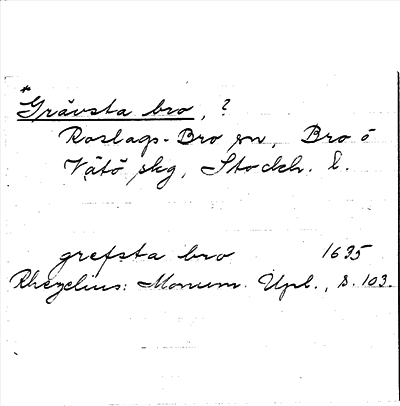 *Grävsta bro, ?
Roslags-Bro sn, Bro o
Vätö skg, Stockh. l.
grefsta bro 1635
Rhezelius: Monum. Upl., s. 103.